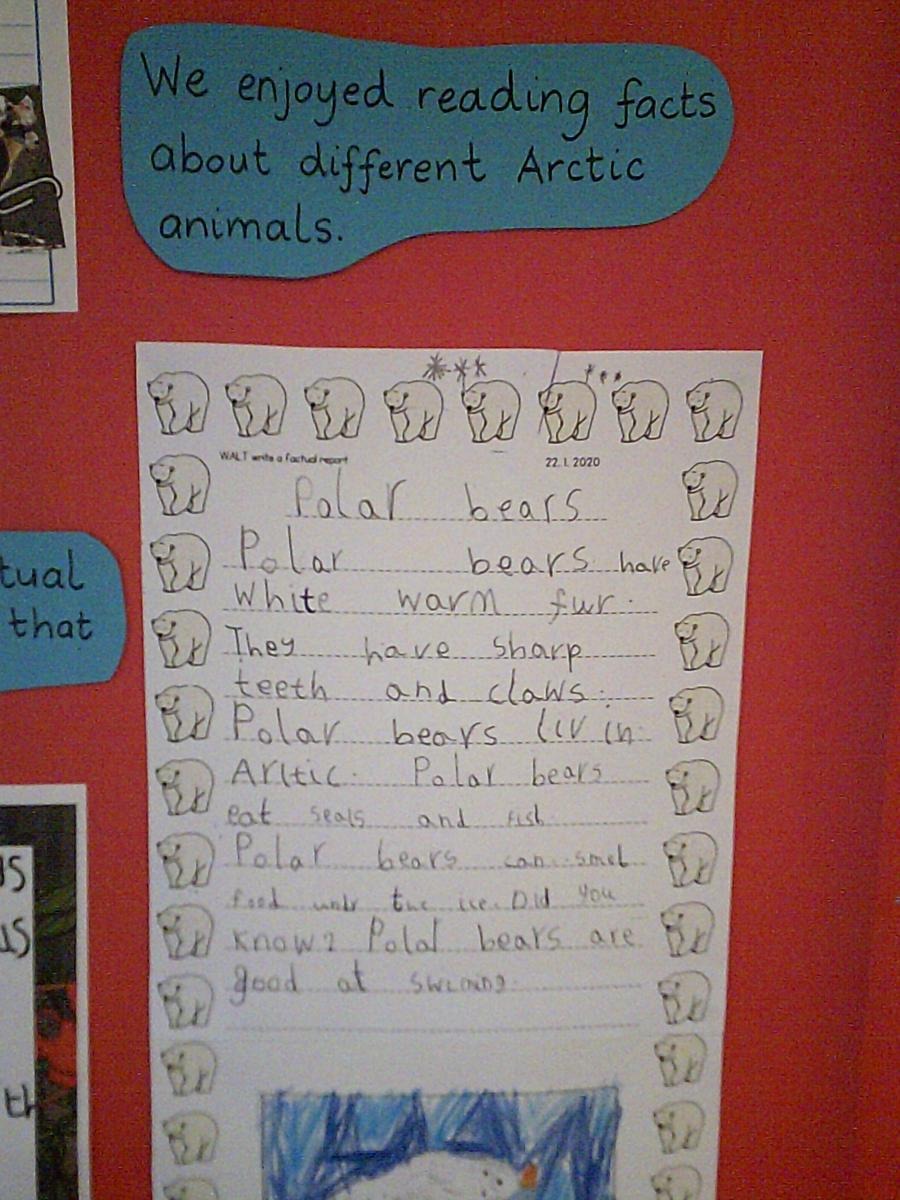 We enjoyed reading facts
about different Arctic
animals.
tual
that
WALT write a factual report
22.1.2020
Polar bears
Polar bears have
white warm fur.
They have sharp
teeth and claws.
Polar bears liv in
Arctic. Polar bears
eat seals and fish.
Polar bears can smel
food undr the ice. Did you
know? Polar bears are
good at swiming.
us
us
th